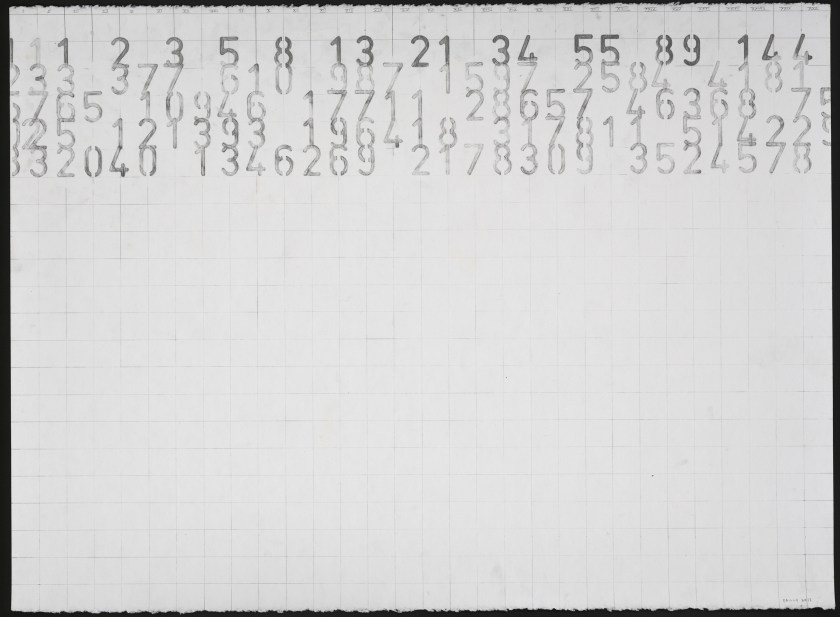 1 1 1 2 3 5 8 13 21 34 55 89 144
233 377 610 987 1597 2584 4181
6765 10946 17711 28657 46368 75
025 121393 196418 317811 514229
832040 1346269 2178309 3524578